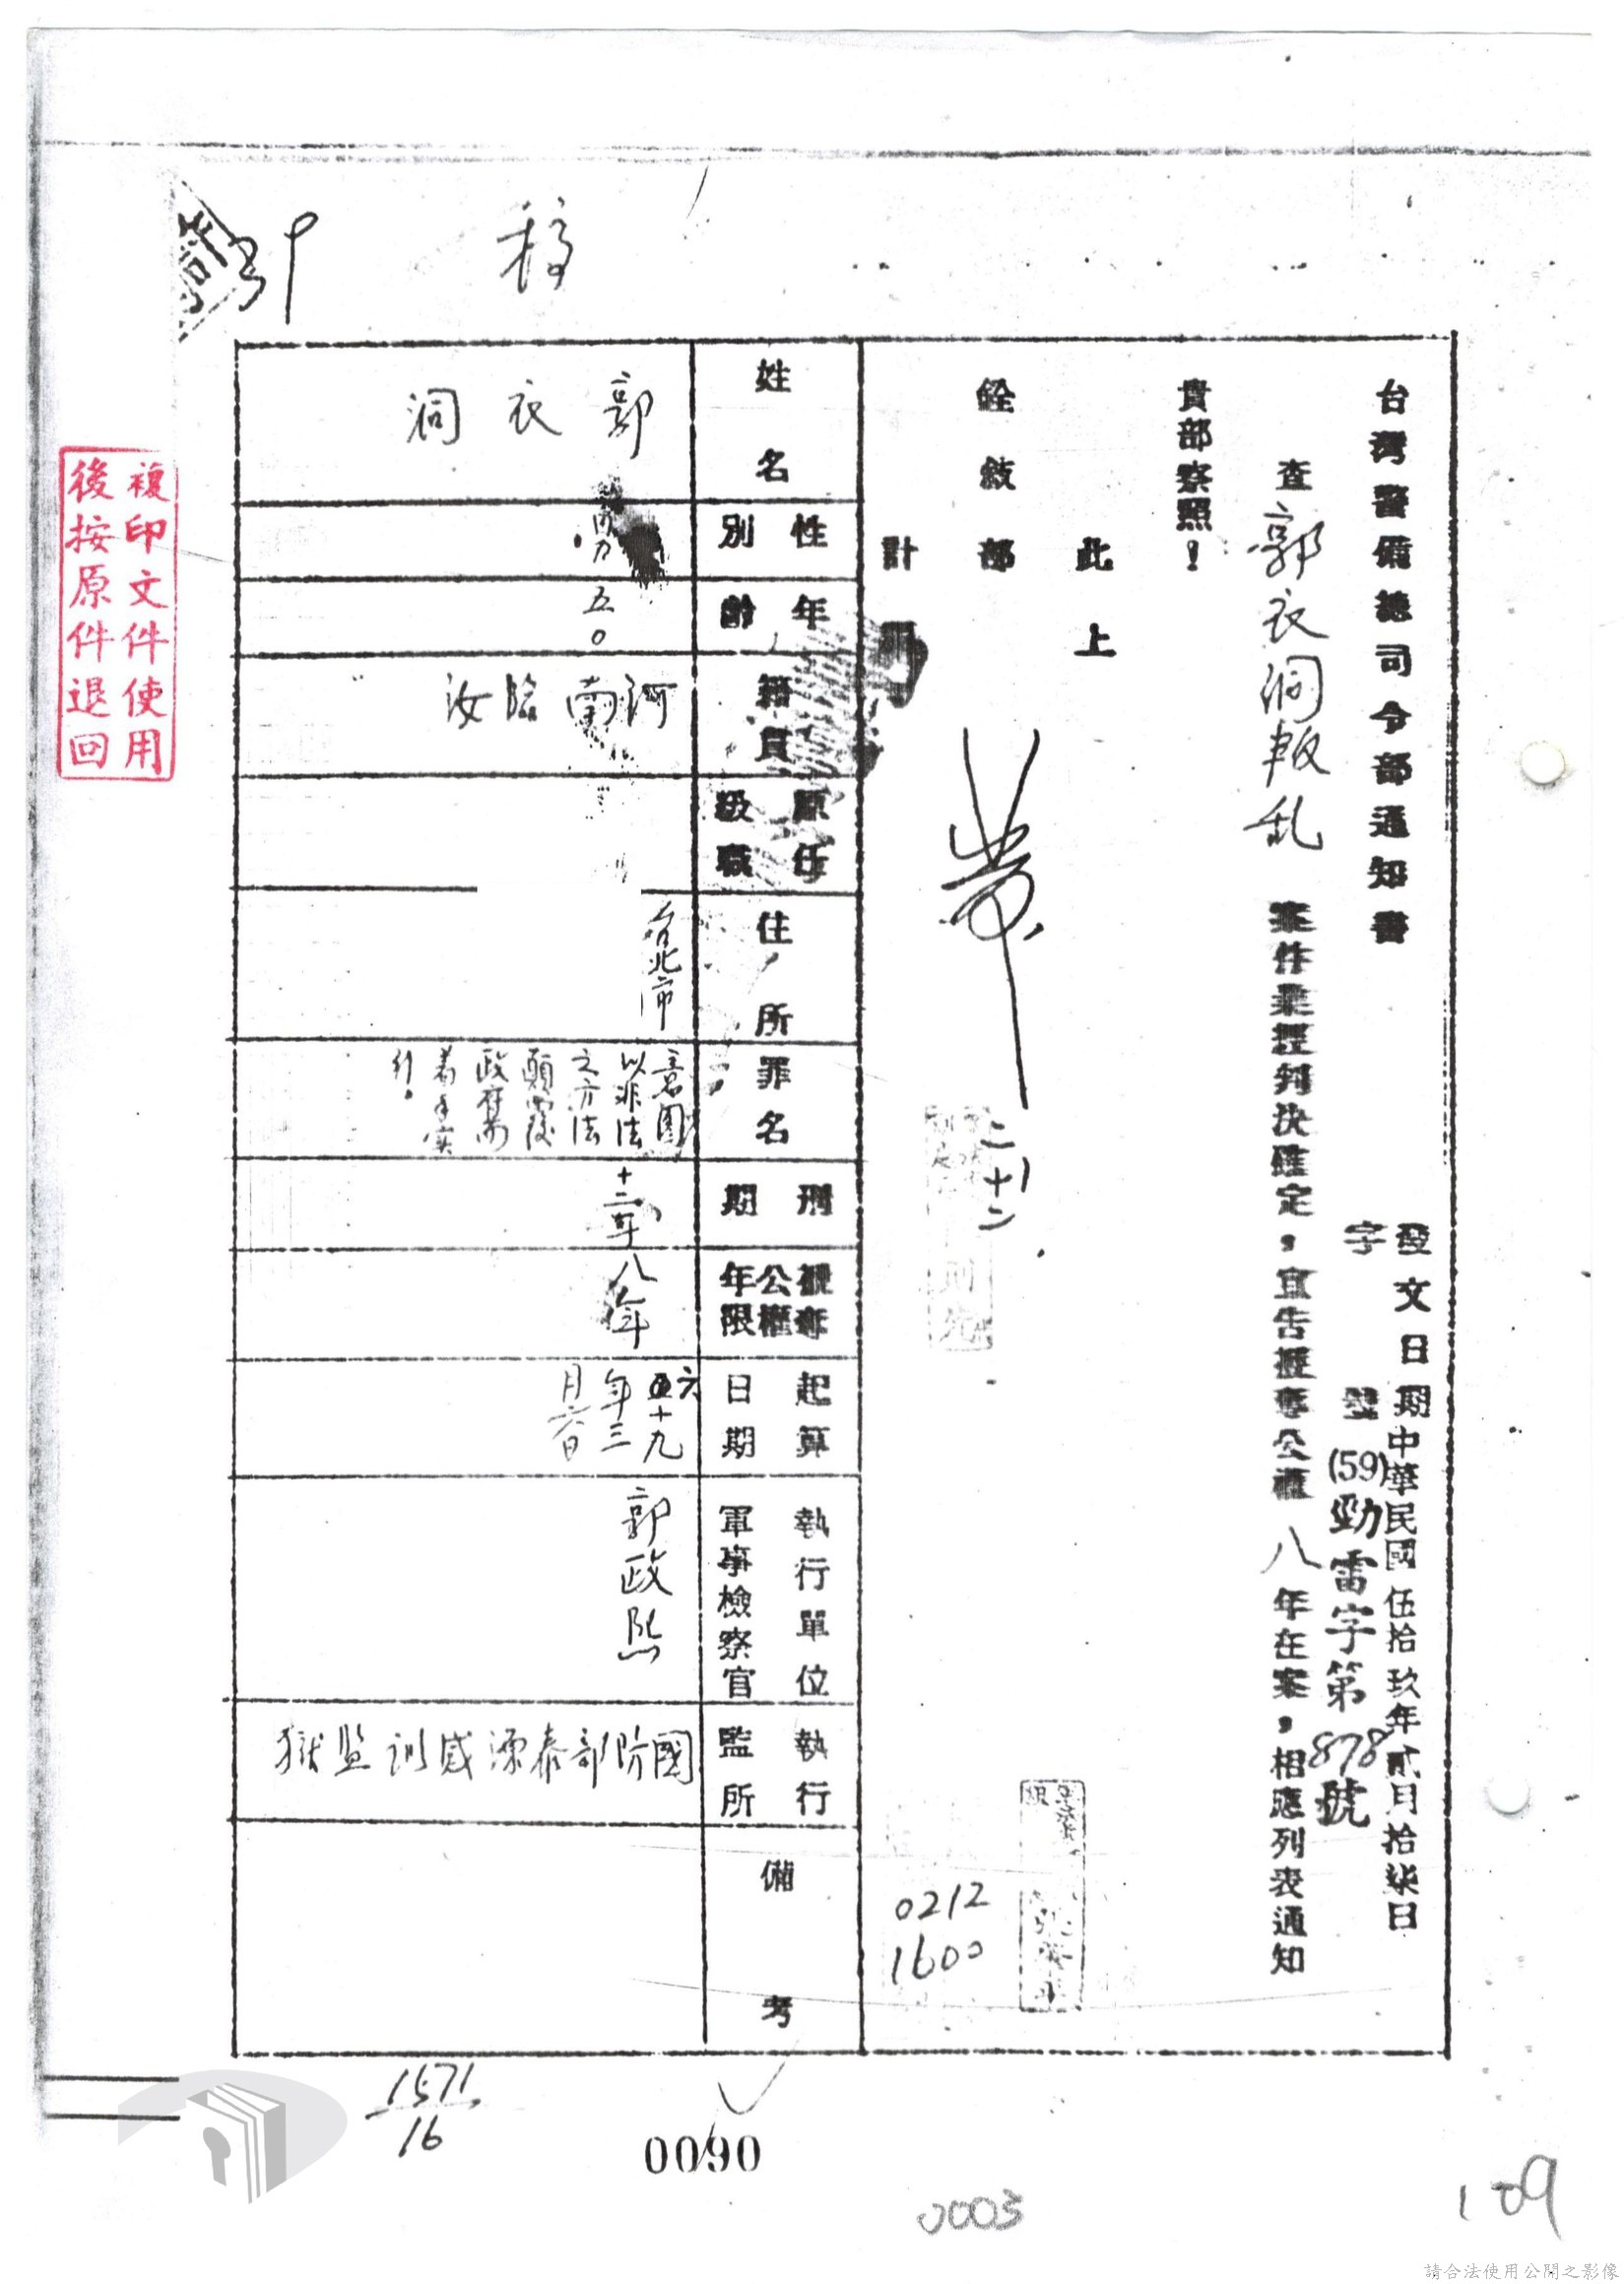 稿
台灣警備總司令部通知書
發文日期中華民國伍拾玖年貳月拾柒日
字號(59)勁雷字第878號
查郭衣洞叛乱案件業經判決確定，宣告褫奪公權八年在案，相應列表通知
貴部察照！
此上
銓敍部
二十二
0212
1600
姓名
郭衣洞
性別
男
年齡
五〇
籍貫
河南臨汝
原任級職
住所
台北市
罪名
意圖以非法之方法顛覆政府而着手实行。
刑期
十二年
褫奪公權年限
八年
起算日期
六十九年三月六日
執行單位軍事檢察官
郭政熙
執行監所
國防部泰源感訓监獄
備考
複印文件使用
後按原件退回
1571
16
0090
0003
109
請合法使用公開之影像